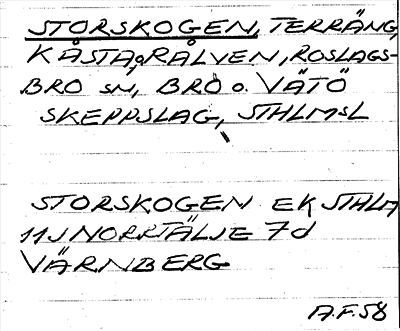 STORSKOGEN, TERRÄNG,
KÅSTA o. RÅLVEN, ROSLAGS-
BRO SN, BRO o. VÄTÖ
SKEPPSLAG, STHLMSL
STORSKOGEN EK STHLM
11J NORRTÄLJE 7d
VÄRNBERG
A.F. 58